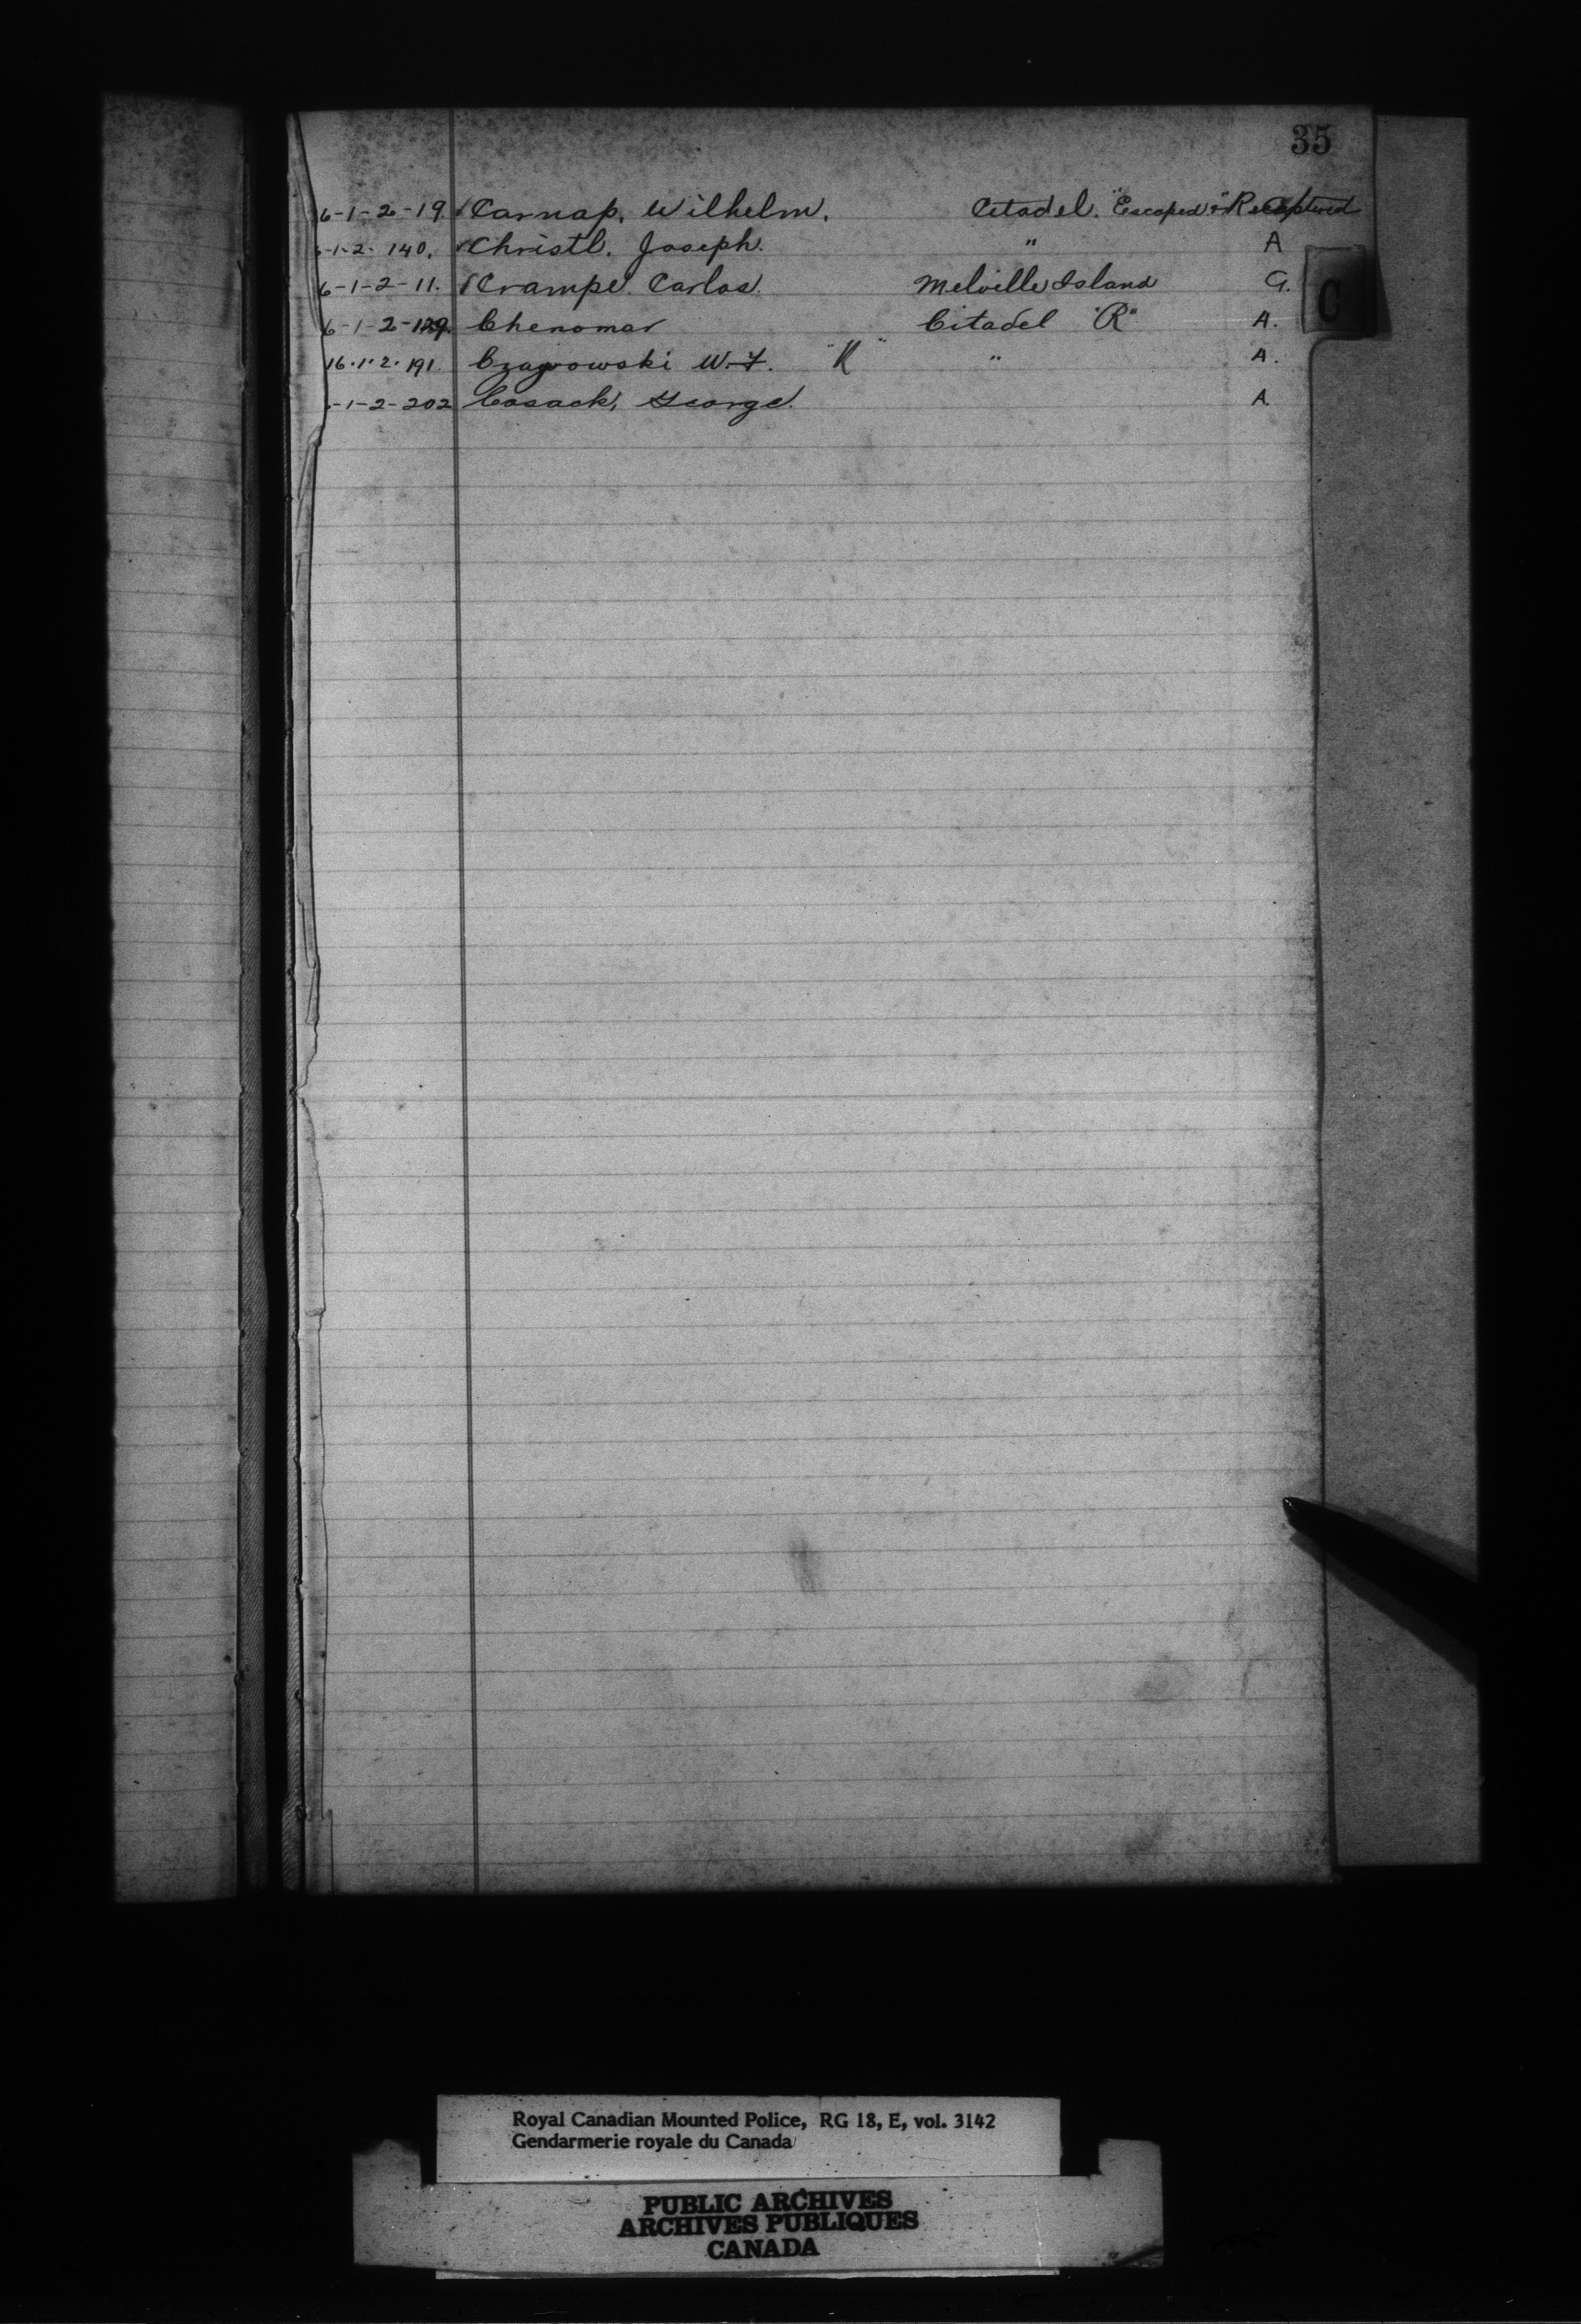 35
6-1-2-19. ✓Carnap, Wilhelm, Citadel. "Escaped & "Recaptured
-1-2-140. ✓Christl. Joseph. " A
6-1-2-11. ✓Crampe. Carlos. Melville Island G.
C
6-1-2-129. Chenomar Citadel "R" A.
16-1-2-191. W.F. "R" " A.
-1-2-202 Cosack, George. A.
Royal Canadian Mounted Police, RG 18, E, vol. 3142
Gendarmerie royale du Canada
PUBLIC ARCHIVES
ARCHIVES PUBLIQUES
CANADA